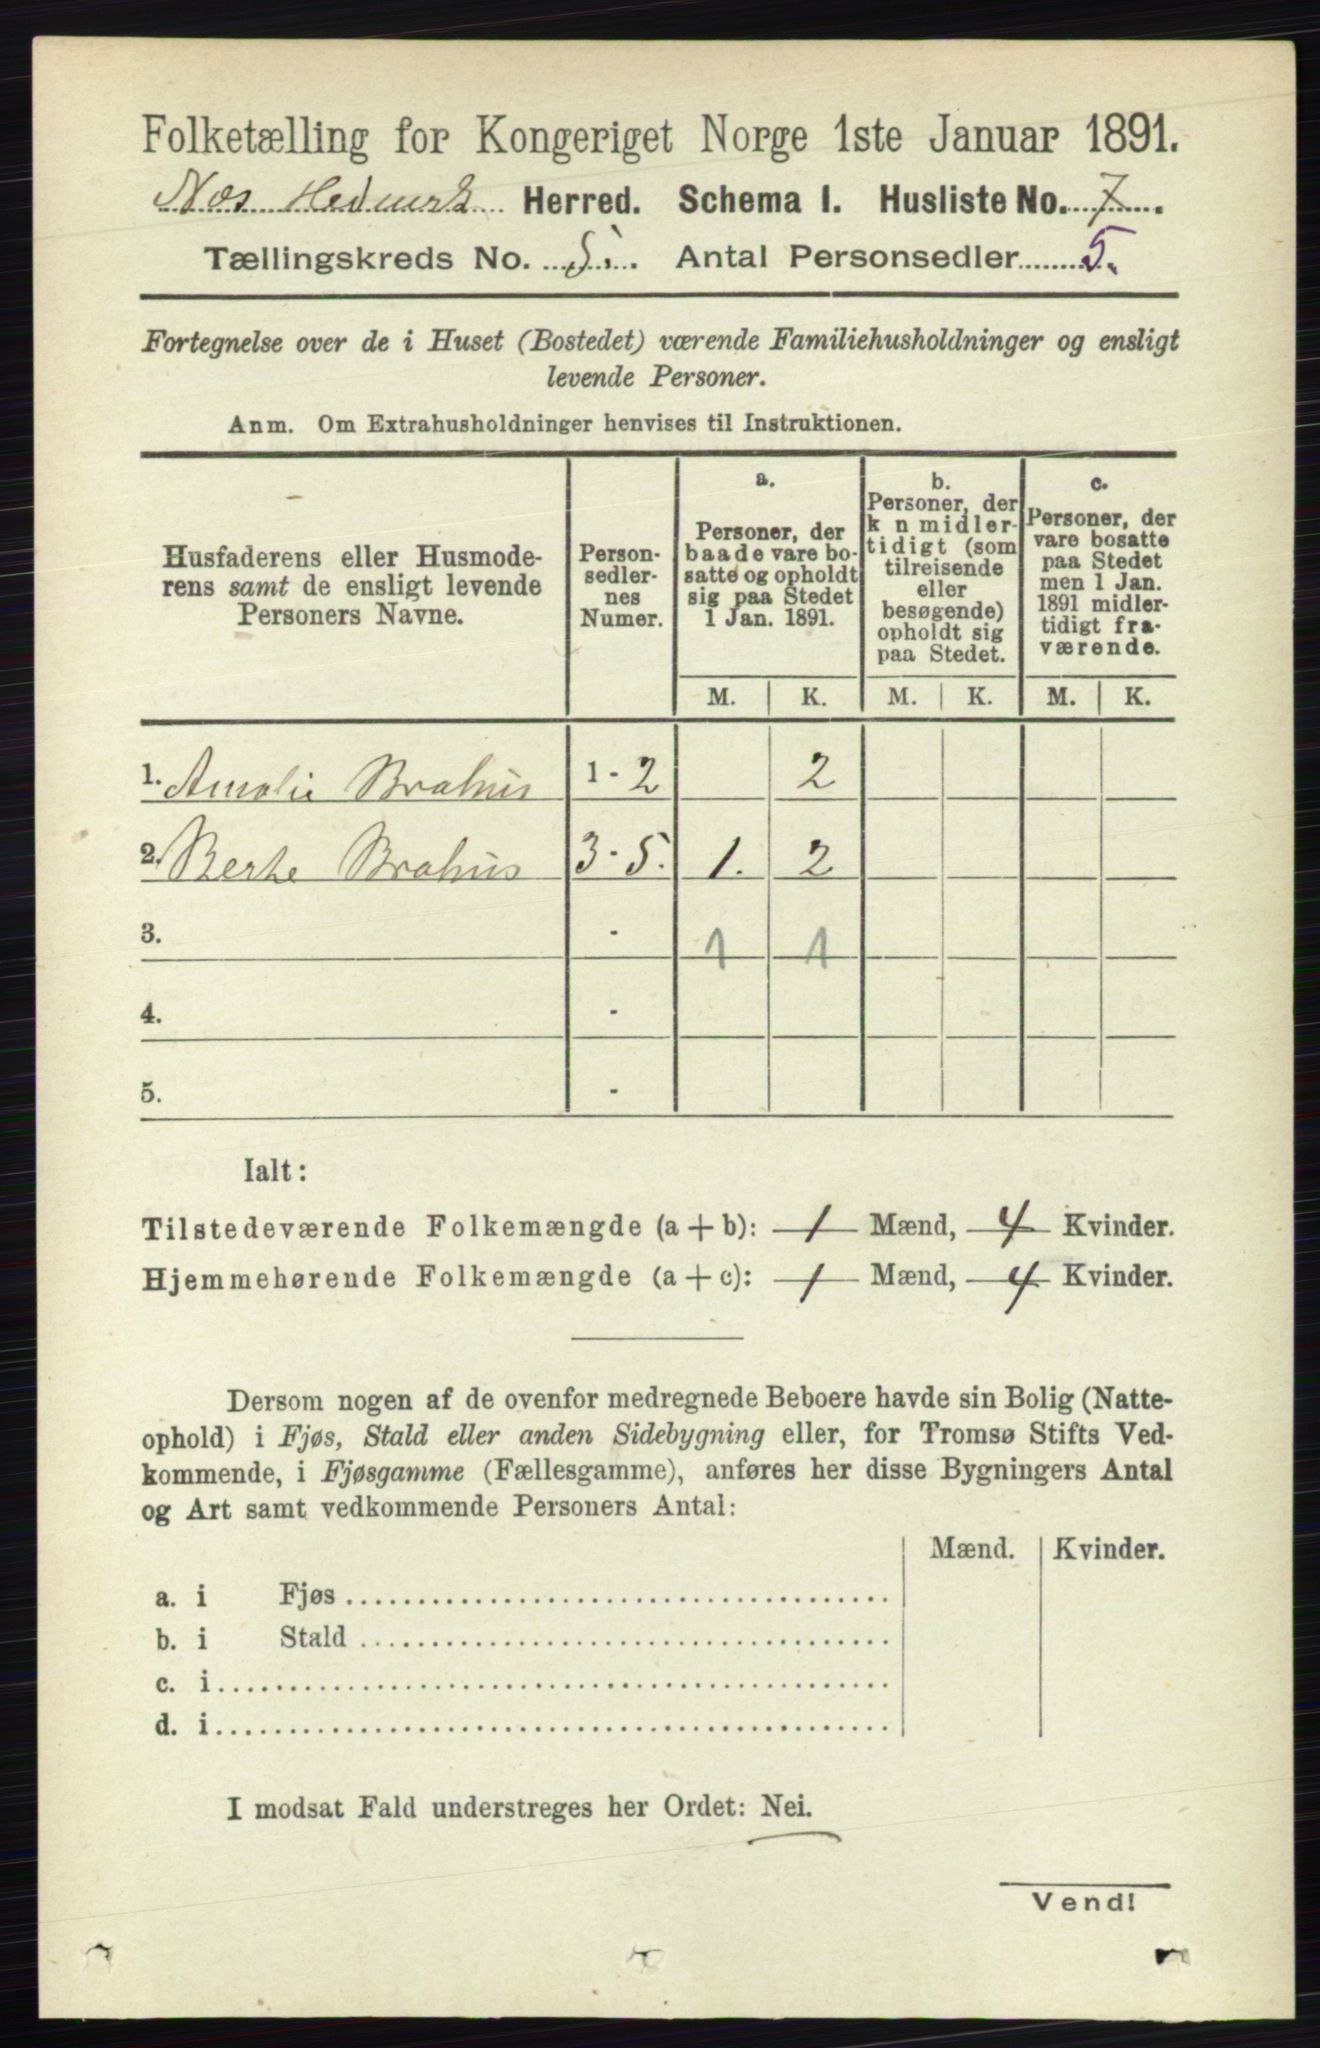 Folketælling for Kongeriget Norge 1ste Januar 1891.
Næs Hedmark Herred. Schema I. Husliste No. 7.
Tællingskreds No. 5. Antal Personsedler 5.
Fortegnelse over de i Huset (Bostedet) værende Familiehusholdninger og ensligt
levende Personer.
Anm. Om Extrahusholdninger henvises til Instruktionen.
Husfaderens eller Husmode-
rens samt de ensligt levende
Personers Navne.
Person-
sedler-
nes
Numer.
a.
Personer, der
baade vare bo-
satte og opholdt
sig paa Stedet
1 Jan. 1891.
b.
Personer, der
k n midler-
tidigt (som
tilreisende
eller
besøgende)
opholdt sig
paa Stedet.
c.
Personer, der
vare bosatte
paa Stedet
men 1 Jan.
1891 midler-
tidigt fra-
værende.
M. K. M. K. M. K.
1. Amalie Brahus 1 - 2 2
2. Berte Brahus 3 - 5. 1. 2
3. - 1 1
4. -
5. -
Ialt:
Tilstedeværende Folkemængde (a + b): 1 Mænd, 4 Kvinder.
Hjemmehørende Folkemængde (a + c): 1 Mænd, 4 Kvinder.
Dersom nogen af de ovenfor medregnede Beboere havde sin Bolig (Natte-
ophold) i Fjøs, Stald eller anden Sidebygning eller, for Tromsø Stifts Ved-
kommende, i Fjøsgamme (Fællesgamme), anføres her disse Bygningers Antal
og Art samt vedkommende Personers Antal:
Mænd. Kvinder.
a. i Fjøs
b. i Stald
c. i
d. i
I modsat Fald understreges her Ordet: Nei.
Vend!